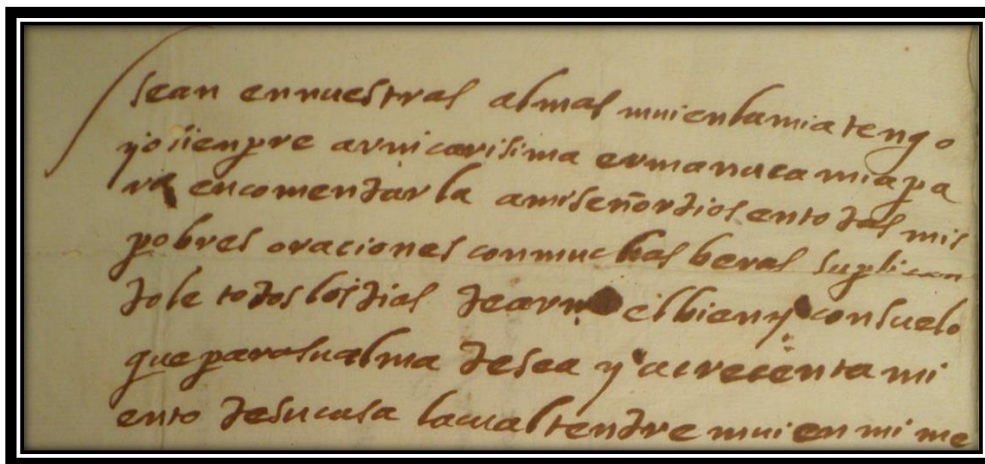 sean ennuestras almas mui enlamia tengo
yo sienpre avm carisima ermanuca mia pa
ra encomendarla amiseñor dios entodas mis
pobres oraciones conmuchas beras suplican
dole todos los dias deavm el bien y consuelo
que parasualma desea y acrecentami
ento desucasa laqual tendre mui en mi me